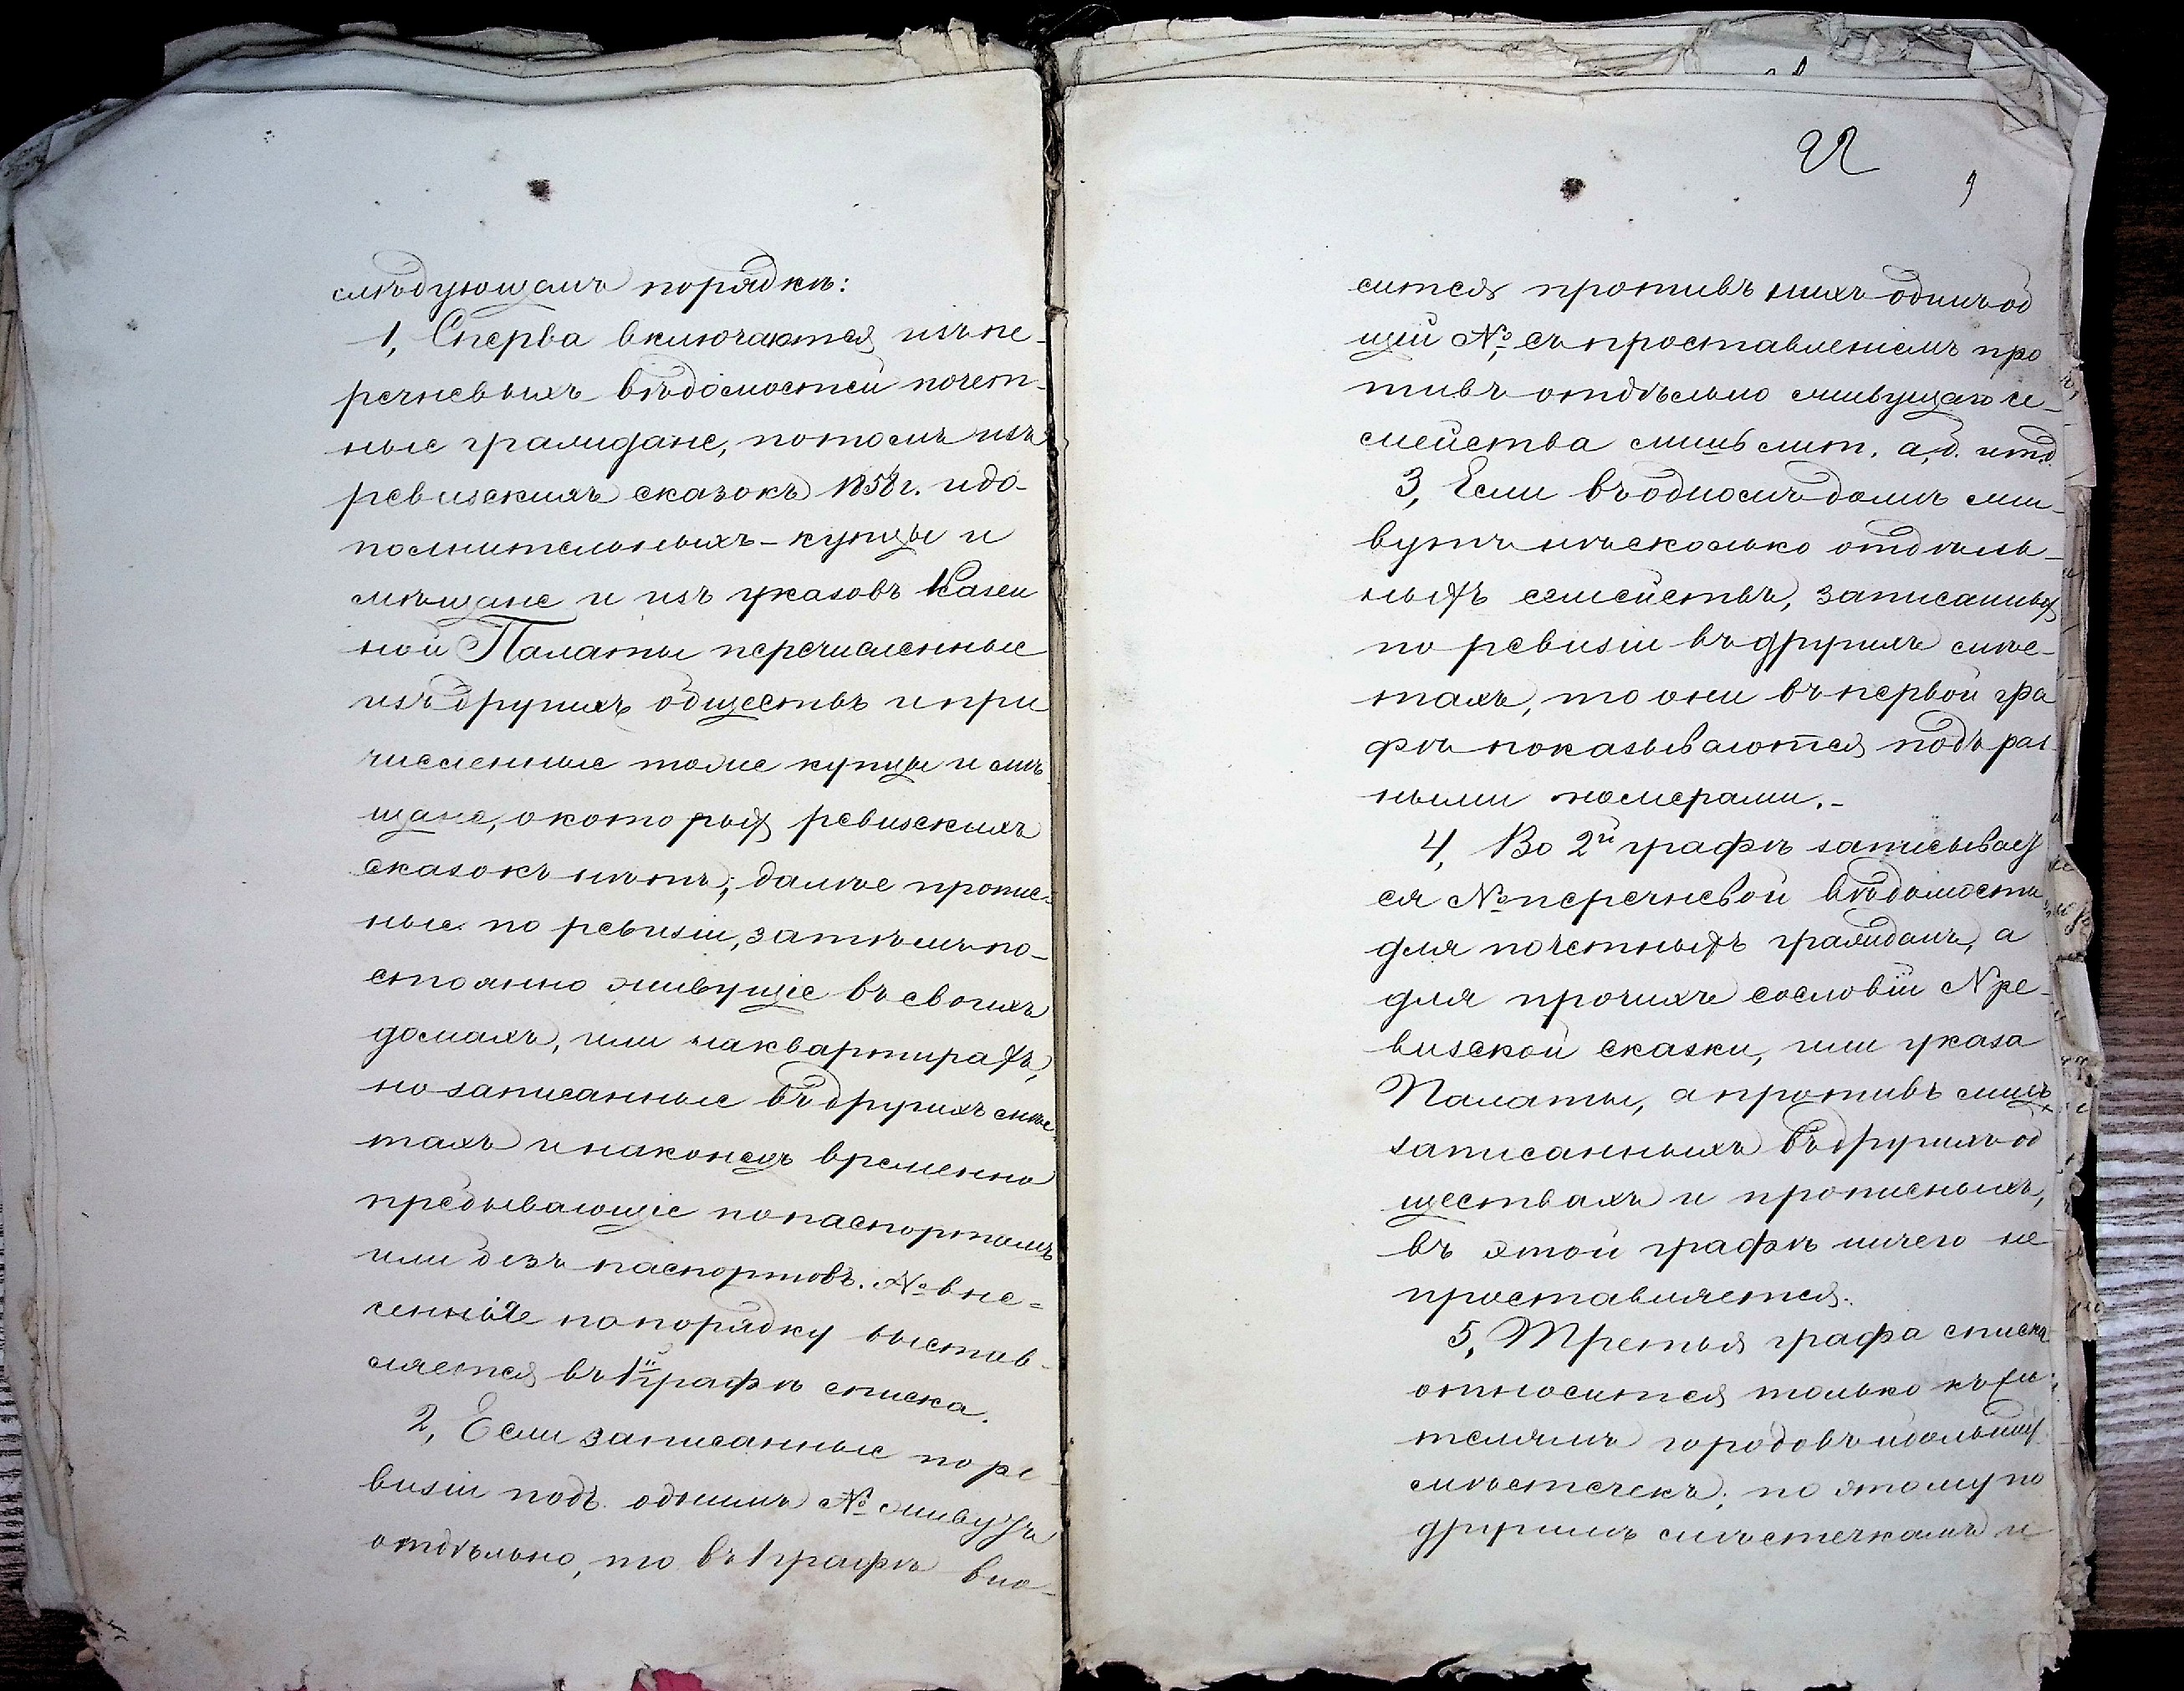 слѣдующемъ порядкѣ:
1, Сперва включаются изъ пе-
речневыхъ вѣдомостей почет-
ные граждане, потомъ изъ
ревизскихъ сказокъ 1858 г. и до-
полнительныхъ - купцы и
мѣщане и изъ указовъ Казен
ной Палаты перечисленные
изъ другихъ обществъ и при
численные тоже купцы и мѣ-
щане, о которыхъ ревизскихъ
сказокъ нѣтъ; далѣе пропис-
ные по ревизіи, затѣмъ по-
стоянно живущіе въ своихъ
домахъ, или на квартирахъ,
но записанные въ другихъ мѣс-
тахъ и наконецъ временно
пребывающіе по паспортамъ
или безъ паспортовъ. № вне-
сенные по порядку выстав-
ляется въ 1й графѣ списка.
2, Если записанные по ре-
визіи подъ однимъ № живутъ
отдѣльно, то въ 1 графѣ вно-
22
сится противъ нихъ одинъ об
щій №, съ проставленіемъ про
тивъ отдѣльно живущаго се-
мейства лишь лит. а, б. итд.
3, Если въ одномъ домѣ жи-
вутъ нѣсколько отдѣль-
ныхъ семействъ, записанныхъ
по ревизіи въ другихъ мѣс-
тахъ, то они въ первой гра
фѣ показываются подъ раз
ными номерами.-
4, Во 2й графѣ записывает
ся № перечневой вѣдомости
для почетныхъ гражданъ, а
для прочихъ сословій № ре-
визской сказки, или указа
Палаты, а противъ лицъ,
записанныхъ въ другихъ об
ществахъ и прописныхъ,
въ этой графѣ ничего не
проставляется.
5, Третья графа списка
относится только къ жи-
телямъ городовъ и большихъ
мѣстечекъ; по этому по
другимъ мѣстечкамъ и